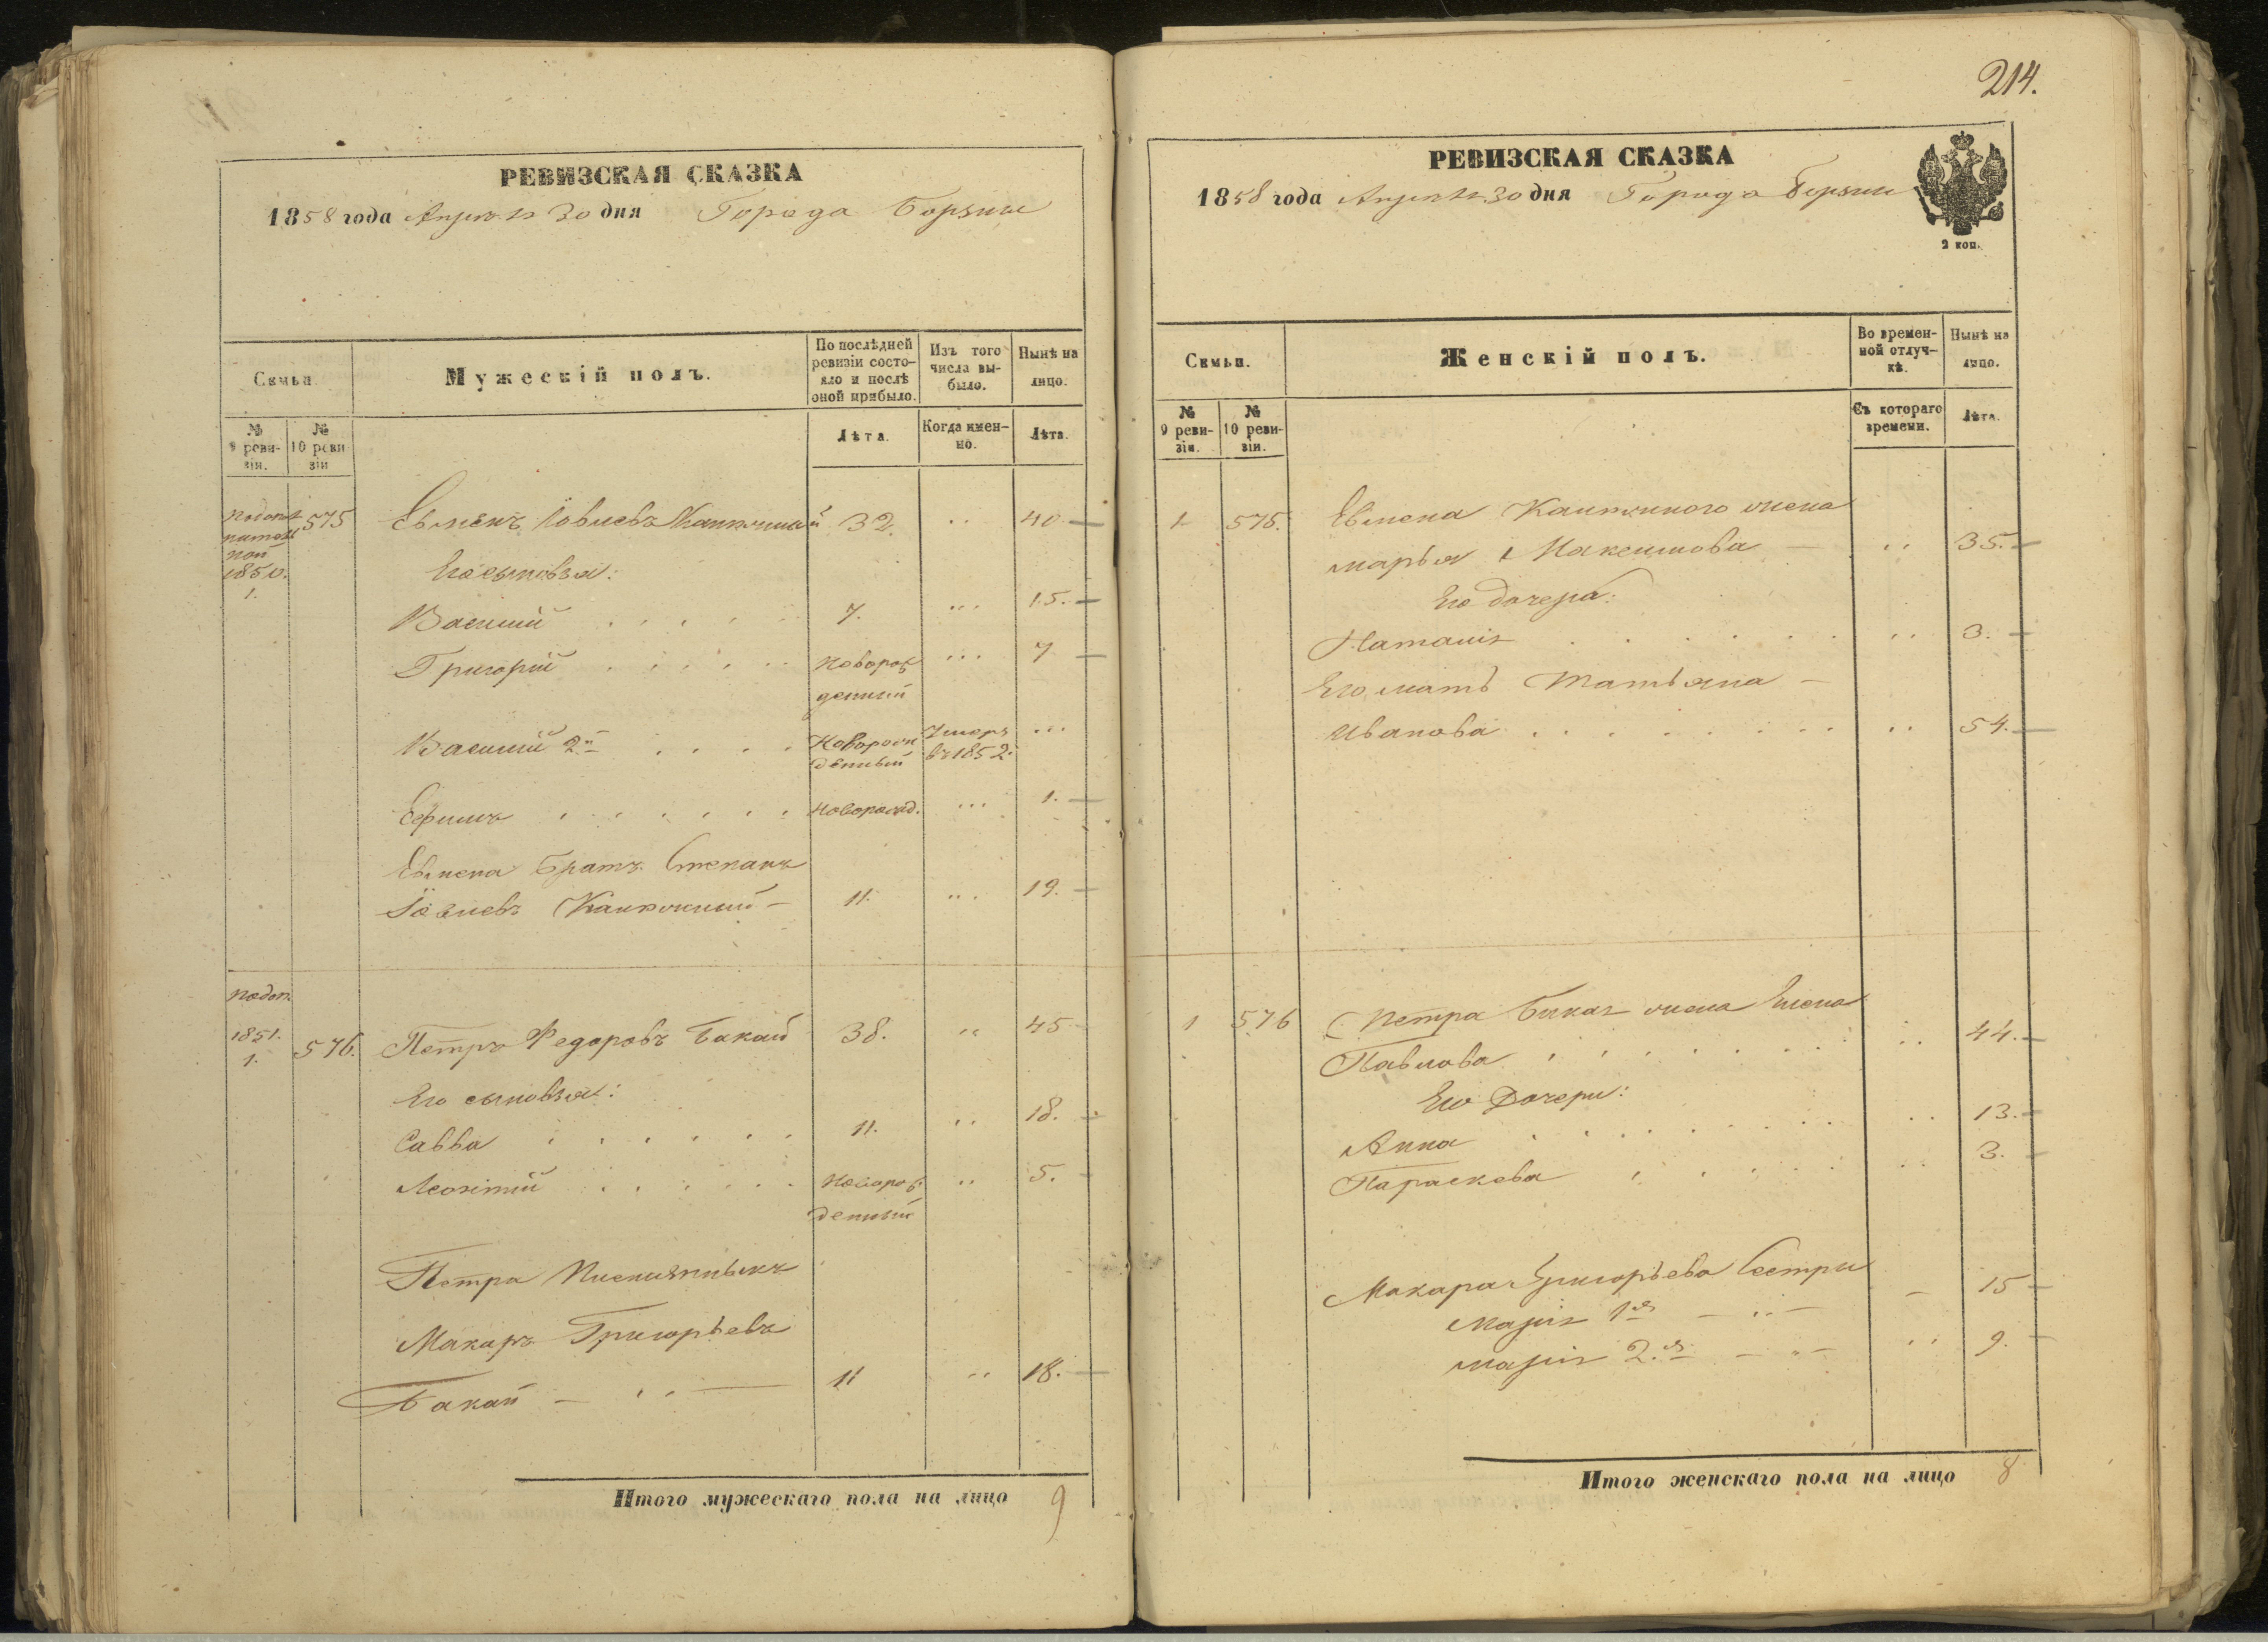 РЕВИЗСКАЯ СКАЗКА
1858 года Апреля 30 дня Города Борзны
Семьи.
Мужескій полъ.
По послѣдней ревизіи состояло и послѣ оной прибыло.
Изъ того числа выбыло.
Нынѣ на лицо.
№ 9 ревизіи.
№ 10 ревизіи
Лѣта.
Когда именно.
Лѣта.
1850.
1.
575 Евменъ Іовлевъ 32. 40
Его сыновья:
Василій 7. 15.
Григорій Новорожденный 7
Василій 2й Новорожденный Умеръ въ 1852.
Ефимъ Новорожд. 1.
Евмена братъ Степанъ
Іовлевъ 11. 19.
1851.
1.
576. Петръ Федоровъ Бакай 38. 45
Его сыновья:
Савва 11. 18.
Леонтій Новорожденный 5.
Петра Племянникъ
Макаръ Григорьевъ
Бакай 11 18.
Итого мужескаго пола на лицо 9
214.
РЕВИЗСКАЯ СКАЗКА
1858 года Апреля 30 дня Города Борзны
2 коп.
Семьи.
Женскій полъ.
Во временной отлучкѣ.
Нынѣ на лицо.
№ 9 ревизіи.
№ 10 ревизіи.
Съ котораго времени.
Лѣта.
1 575. Евмена жена
Марья Максимова 35.
Его дочери:
Наталія 3.
Его мать Татьяна
Иванова 54.
1 576 Петра Бакая жена Елена
Павлова 44.
Его Дочери:
Анна 13.
Параскева 3.
Макара Григорьева Сестры
Марія 1я 15
Марія 2.я 9.
Итого женскаго пола на лицо 8